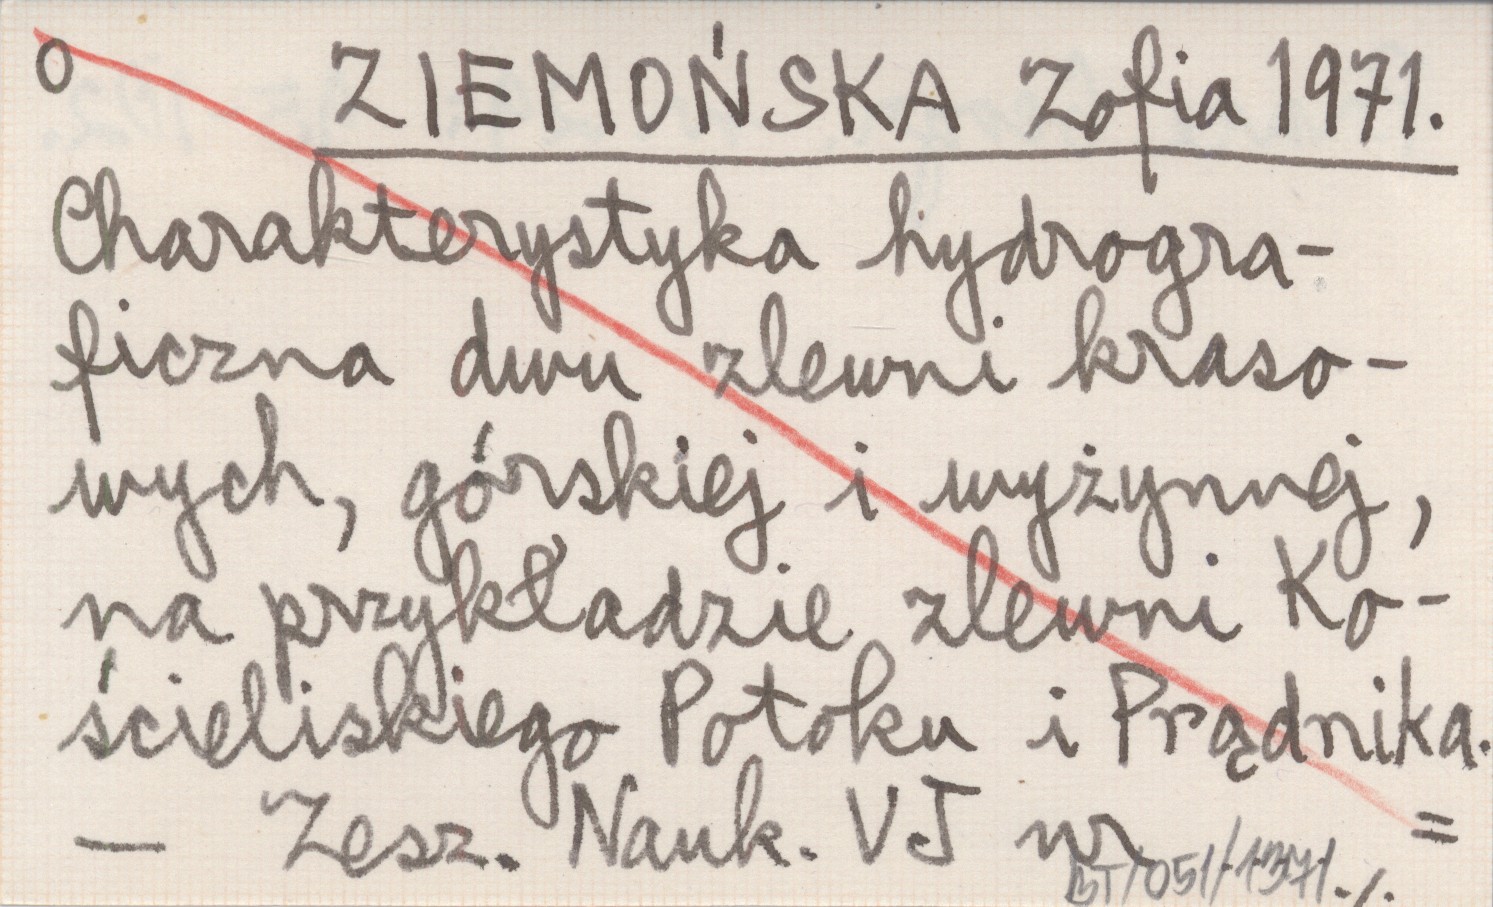 O ZIEMOŃSKA Zofia 1971.
Charakterystyka hydrogra-
ficzna dwu zlewni kraso-
wych, górskiej i wyżynnej,
na przykładzie zlewni Ko-
ścieliskiego Potoku i Prądnika.
— Zesz. Nauk. UJ nr =
BT/051/1371./.